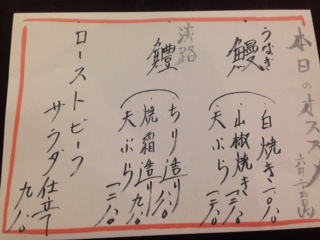 本日のオススメ
うなぎ
鰻
白焼き 一八〇〇
山椒焼き
天ぷら
淡路
鱧
ちり造り
焼霜造り 九八〇
天ぷら
ローストビーフ
サラダ仕立て
九八〇